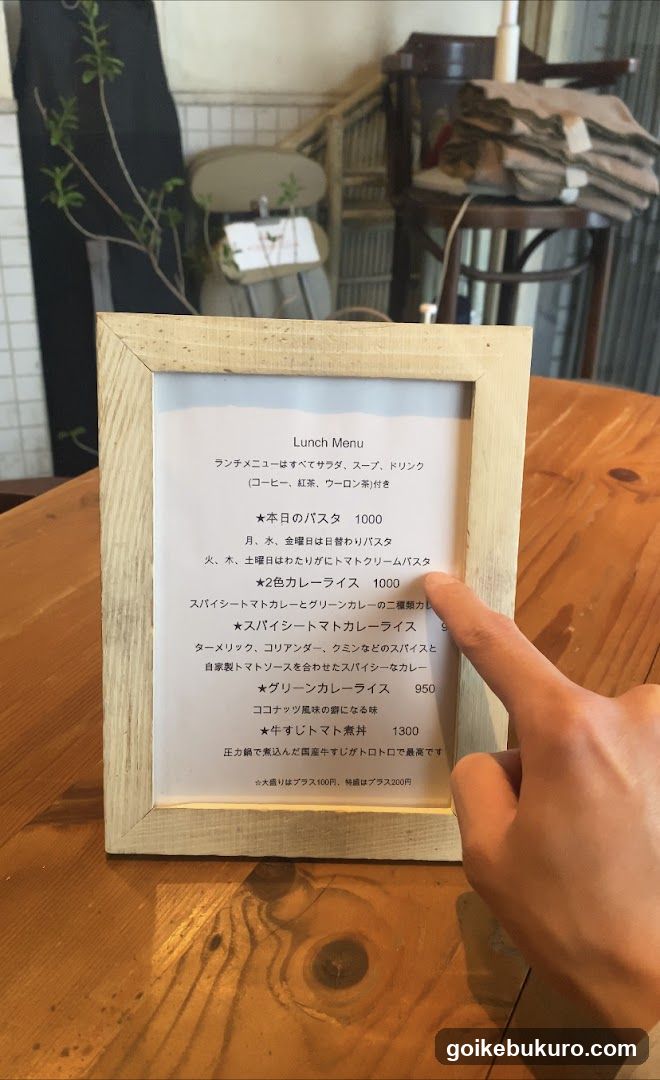 Lunch Menu
ランチメニューはすべてサラダ、スープ、ドリンク
(コーヒー、紅茶、ウーロン茶)付き
★本日のパスタ 1000
月、水、金曜日は日替わりパスタ
火、木、土曜日はわたりがにトマトクリームパスタ
★2色カレーライス 1000
スパイシートマトカレーとグリーンカレーの二種類カレ
★スパイシートマトカレーライス 9
ターメリック、コリアンダー、クミンなどのスパイスと
自家製トマトソースを合わせたスパイシーなカレー
★グリーンカレーライス 950
ココナッツ風味の癖になる味
★牛すじトマト煮丼 1300
圧力鍋で煮込んだ国産牛すじがトロトロで最高です
☆大盛りはプラス100円、特盛はプラス200円
goikebukuro.com